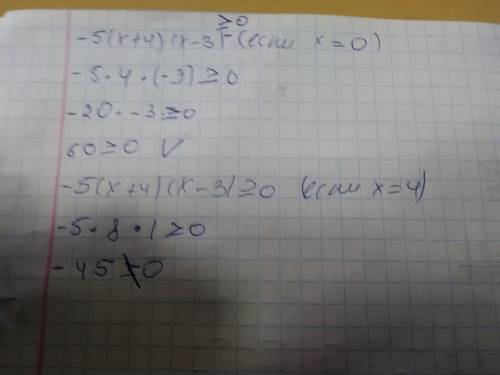 -5(x+4)(x-3)≥0 (если x=0)
-5·4·(-3)≥0
-20·-3≥0
60≥0 V
-5(x+4)(x-3)≥0 (если x=4)
-5·8·1≥0
-45≱0